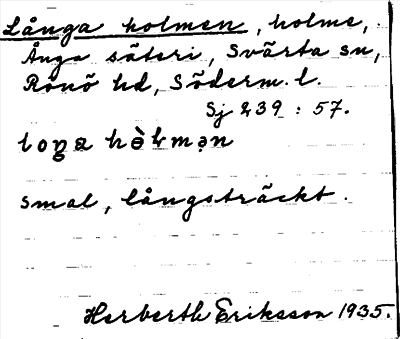 Långa holmen, holme,
Ånga säteri, Svärta sn,
Rönö hd, Söderm. l.
Sj 239 : 57.
loŋa hòɫmən
smal, långsträckt.
Herberth Eriksson 1935.